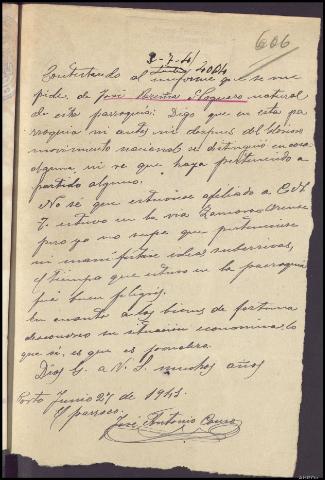 606
2-7-41
4004
Contestando al informe que se me
pide, de José natural
de esta parroquia: Digo que en esta pa-
rroquia ni antes ni despues del
movimiento nacional se distinguió en cosa
alguna, ni se que haya pertenecido a
partido alguno.
No sé que estuviese afiliado a C.N.
T. estuvo en la via Zamora Orense
pero yo no supe que perteneciese
ni manifestase ideas subersivas,
el tiempo que estuvo en la parroquia
fué buen feligrés.
En cuanto a los bienes de fortuna
desconozco su situación economica, lo
que sí, es que es jornalero.
Dios G. a V. S. muchos años
Porto Junio 27 de 1941.
El parroco.
José Antonio